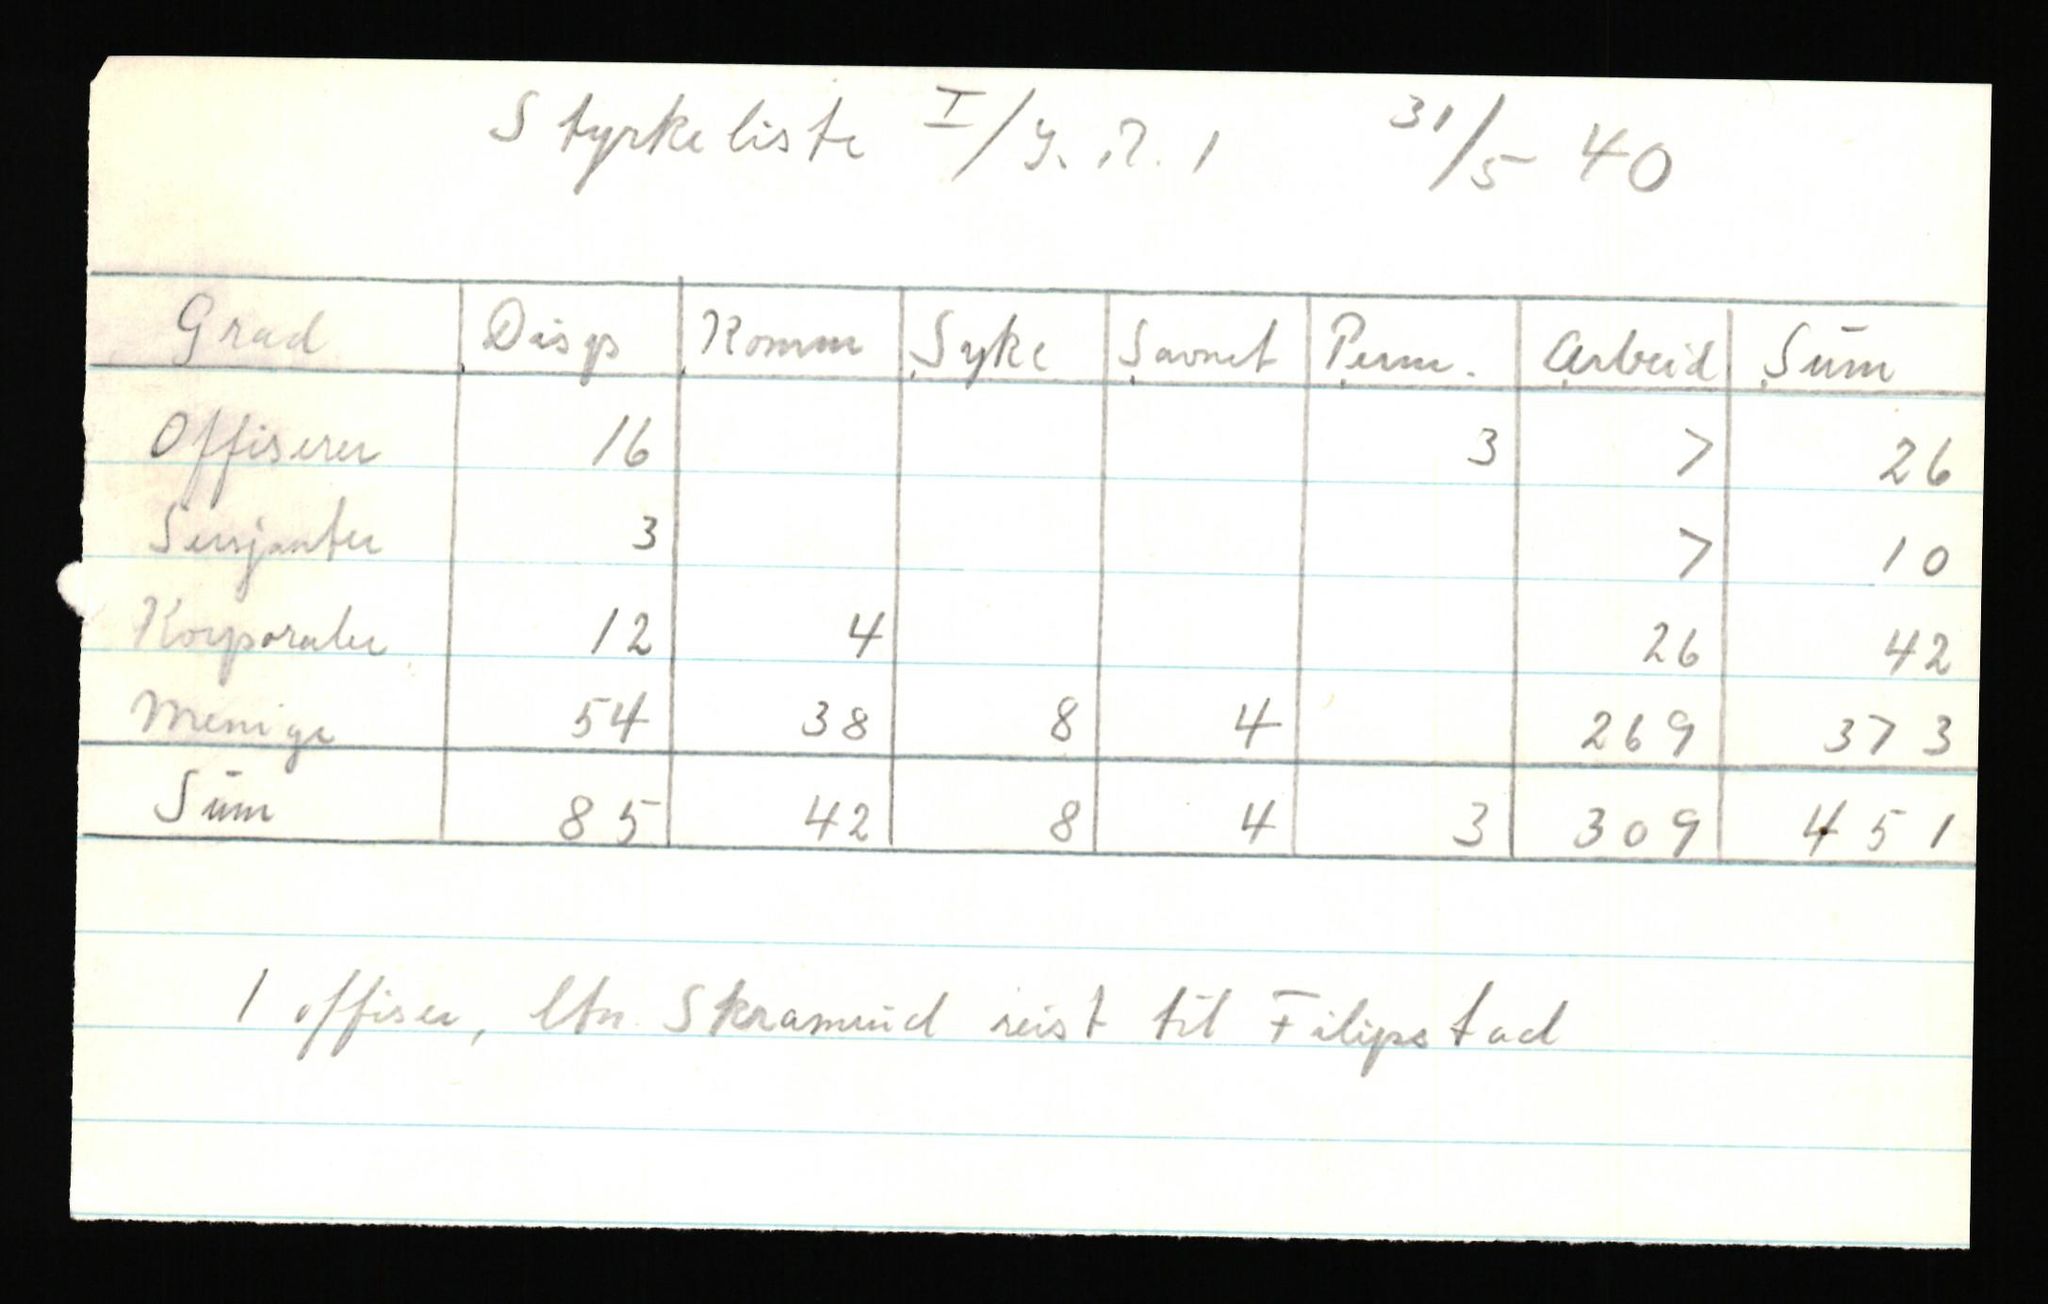 Styrkeliste I/J.R. 1 31/5 40
Grad Disp Komm Syke Savnet Perm. Arbeid Sum
Offiserer 16 3 7 26
Sersjanter 3 7 10
Korporaler 12 4 26 42
Menige 54 38 8 4 269 373
Sum 85 42 8 4 3 309 451
1 offiser, ltn. Skramud reist til Filipstad